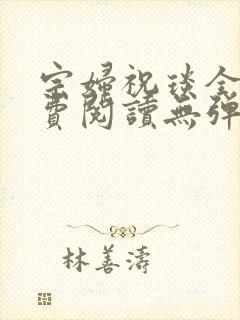 宗婦祝琰全
費閱讀無彈
林善濤